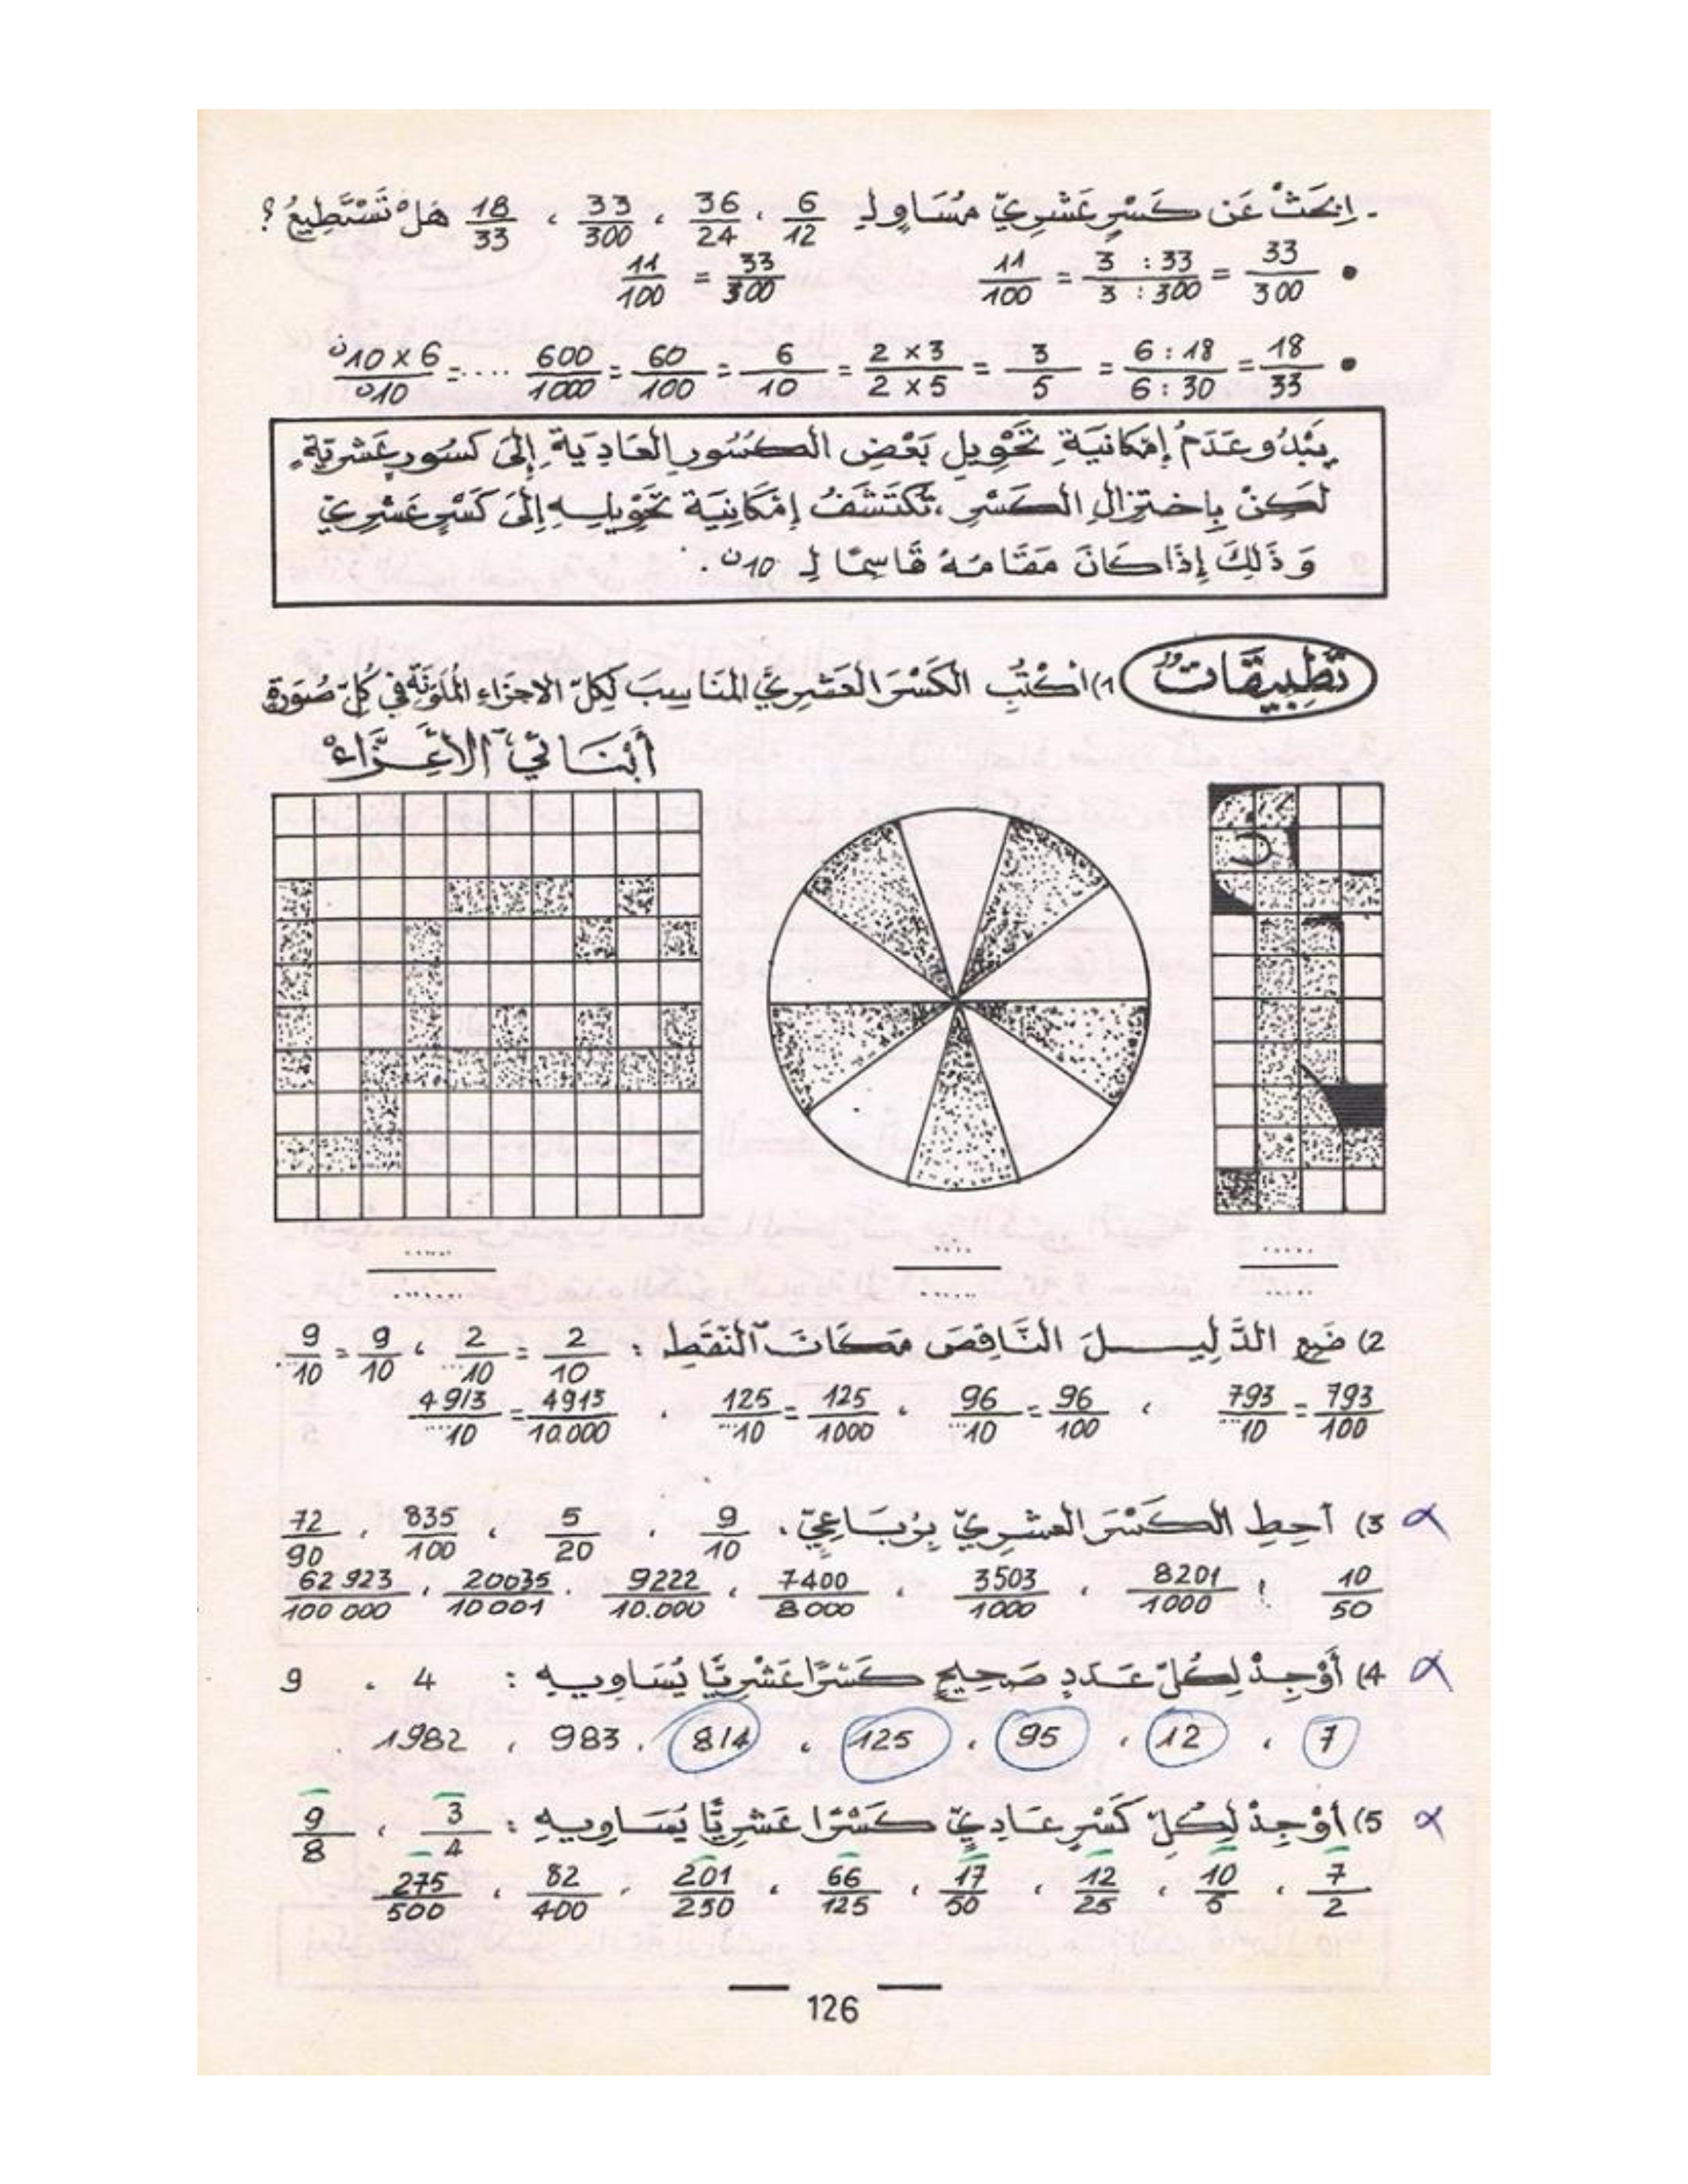 - اِبْحَثْ عَن كَسْرٍ عَشْرِيّ مُسَاوٍ لِـ 6/12 ، 36/24 ، 33/300 ، 18/33 هَلْ تَسْتَطِيعُ ؟
• 33/300 = 3 : 33/3 : 300 = 11/100     33/300 = 11/100
• 18/33 = 6 : 18/6 : 30 = 3/5 = 2 × 3/2 × 5 = 6/10 = 60/100 = 600/1000 ....= 10ن × 6/10ن
يَبْدُو عَدَمُ إِمْكَانِيَةِ تَحْوِيلِ بَعْضِ الكُسُورِ العَادِيَةِ إِلَى كُسُورٍ عَشْرِيَّةٍ
لَكِنْ بِاخْتِزَالِ الكَسْرِ ، تُكْتَشَفُ إِمْكَانِيَةُ تَحْوِيلِهِ إِلَى كَسْرٍ عَشْرِيّ
وَ ذَلِكَ إِذَا كَانَ مَقَامُهُ قَاسِمًا لِـ 10ن .
تَطْبِيقَاتٌ 1) اُكْتُبِ الكَسْرَ العَشْرِيَّ المُنَاسِبَ لِكُلّ الاجزَاءِ المُلَوَّنَة في كُلّ صُورَةٍ
أَبْنَائِي الأَعِزَّاءْ
..... .... .....
....... ...... .....
2) ضَعِ الدَّلِيلَ النَّاقِصَ مَكَانَ النُّقَطِ : 2/10 = 2/10... ، 9/10 = 9/10...
793/100 = 793/10... ، 96/100 = 96/10... ، 125/1000 = 125/10... ، 4913/10.000 = 4913/10...
3) أَحِطِ الكَسْرَ العشريّ بِرُبَاعِيّ . 9/10 ، 5/20 ، 835/100 ، 72/90
10/50 ، 8201/1000 ، 3503/1000 ، 7400/8000 ، 9222/10.000 ، 20035/10001 ، 62 923/100 000
4) أَوْجِدْ لِكُلّ عَدَدٍ صَحِيحٍ كَسْرًا عَشْرِيًّا يُسَاوِيهِ : 4 ، 9
7 ، 12 ، 95 ، 125 ، 814 ، 983 ، 1982
5) أَوْجِدْ لِكُلّ كَسْرٍ عَادِيّ كَسْرًا عَشْرِيًّا يُسَاوِيهِ : 3/4 ، 9/8
7/2 ، 10/5 ، 12/25 ، 17/50 ، 66/125 ، 201/250 ، 82/400 ، 275/500
126